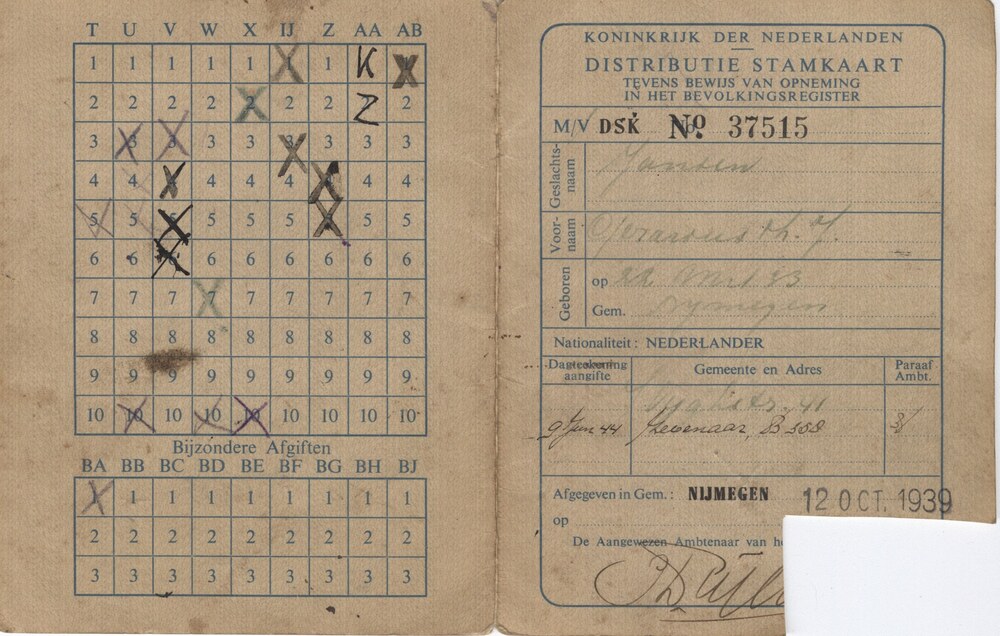 T U V W X IJ Z AA AB
1 1 1 1 1 1 K
2 2 2 2 2 2 2 Z 2
3 3 3 3 3 3 3 3 3
4 4 4 4 4 4 4 4
5 5 5 5 5 5 5 5 5
6 6 6 6 6 6 6 6 6
7 7 7 7 7 7 7 7 7
8 8 8 8 8 8 8 8 8
9 9 9 9 9 9 9 9 9
10 10 10 10 10 10 10 10 10
Bijzondere Afgiften
BA BB BC BD BE BF BG BH BJ
1 1 1 1 1 1 1 1
2 2 2 2 2 2 2 2 2
3 3 3 3 3 3 3 3 3
KONINKRIJK DER NEDERLANDEN
DISTRIBUTIE STAMKAART
TEVENS BEWIJS VAN OPNEMING
IN HET BEVOLKINGSREGISTER
M/V DSK No. 37515
Geslachts-
naam
Jansen
Voor-
naam
Gerardus Th. J.
Geboren
op 22
Gem. Nymegen
Nationaliteit: NEDERLANDER
Dagteekening
aangifte
Gemeente en Adres
Paraaf
Ambt.
41
9 Jun 44 Zevenaar, B 358
Afgegeven in Gem.: NIJMEGEN 12 OCT. 1939
op
De Aangewezen Ambtenaar van